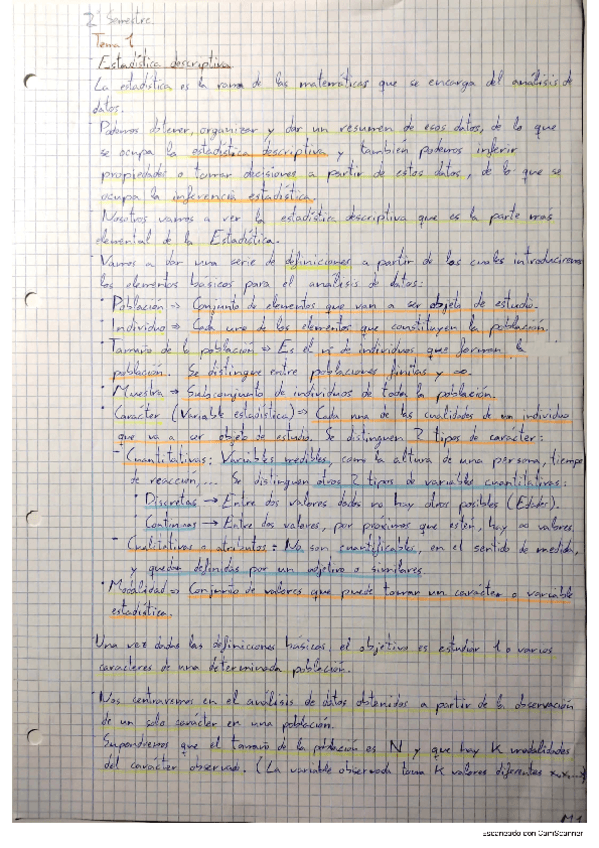 2º Semestre.
Tema 1
- Estadística descriptiva
La estadística es la rama de las matemáticas que se encarga del análisis de
datos.
- Podemos obtener, organizar y dar un resumen de esos datos, de lo que
se ocupa la estadística descriptiva y también podemos inferir
propiedades o tomar decisiones a partir de estos datos, de lo que se
ocupa la inferencia estadística.
- Nosotros vamos a ver la estadística descriptiva que es la parte más
elemental de la Estadística.
- Vamos a dar una serie de definiciones a partir de las cuales introduciremos
los elementos básicos para el análisis de datos:
· Población → Conjunto de elementos que van a ser objeto de estudio.
· Individuo → Cada uno de los elementos que constituyen la población.
· Tamaño de la población → Es el nº de individuos que forman la
población. Se distingue entre poblaciones finitas y ∞.
· Muestra → Subconjunto de individuos de toda la población.
· Carácter (Variable estadística) → Cada una de las cualidades de un individuo
que va a ser objeto de estudio. Se distinguen 2 tipos de carácter:
- Cuantitativas: Variables medibles, como la altura de una persona, tiempo
de reacción,... Se distinguen otros 2 tipos de variables cuantitativas:
· Discretas → Entre dos valores dados no hay otros posibles (Edades).
· Continuas → Entre dos valores, por próximos que estén, hay ∞ valores.
- Cualitativas o atributos: No son cuantificables, en el sentido de medida,
y quedan definidas por un adjetivo o similares.
· Modalidad → Conjunto de valores que puede tomar un carácter o variable
estadística.
Una vez dadas las definiciones básicas, el objetivo es estudiar 1 o varios
caracteres de una determinada población.
- Nos centraremos en el análisis de datos obtenidos a partir de la observación
de un solo carácter en una población.
Supondremos que el tamaño de la población es N y que hay K modalidades
del carácter observado. (La variable observada toma K valores diferentes x₁,x₂,...)
Escaneado con CamScanner